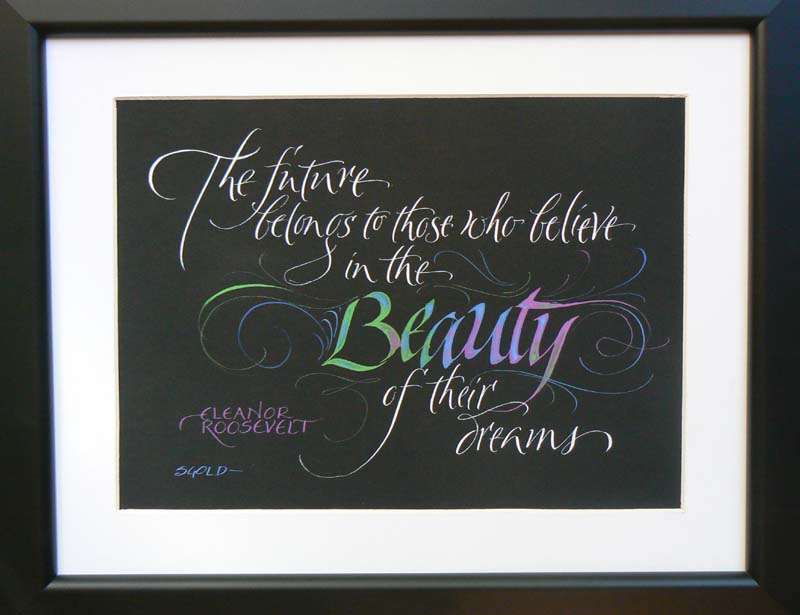 The future
belongs to those who believe
in the
Beauty
of their
dreams
ELEANOR
ROOSEVELT
SGOLD